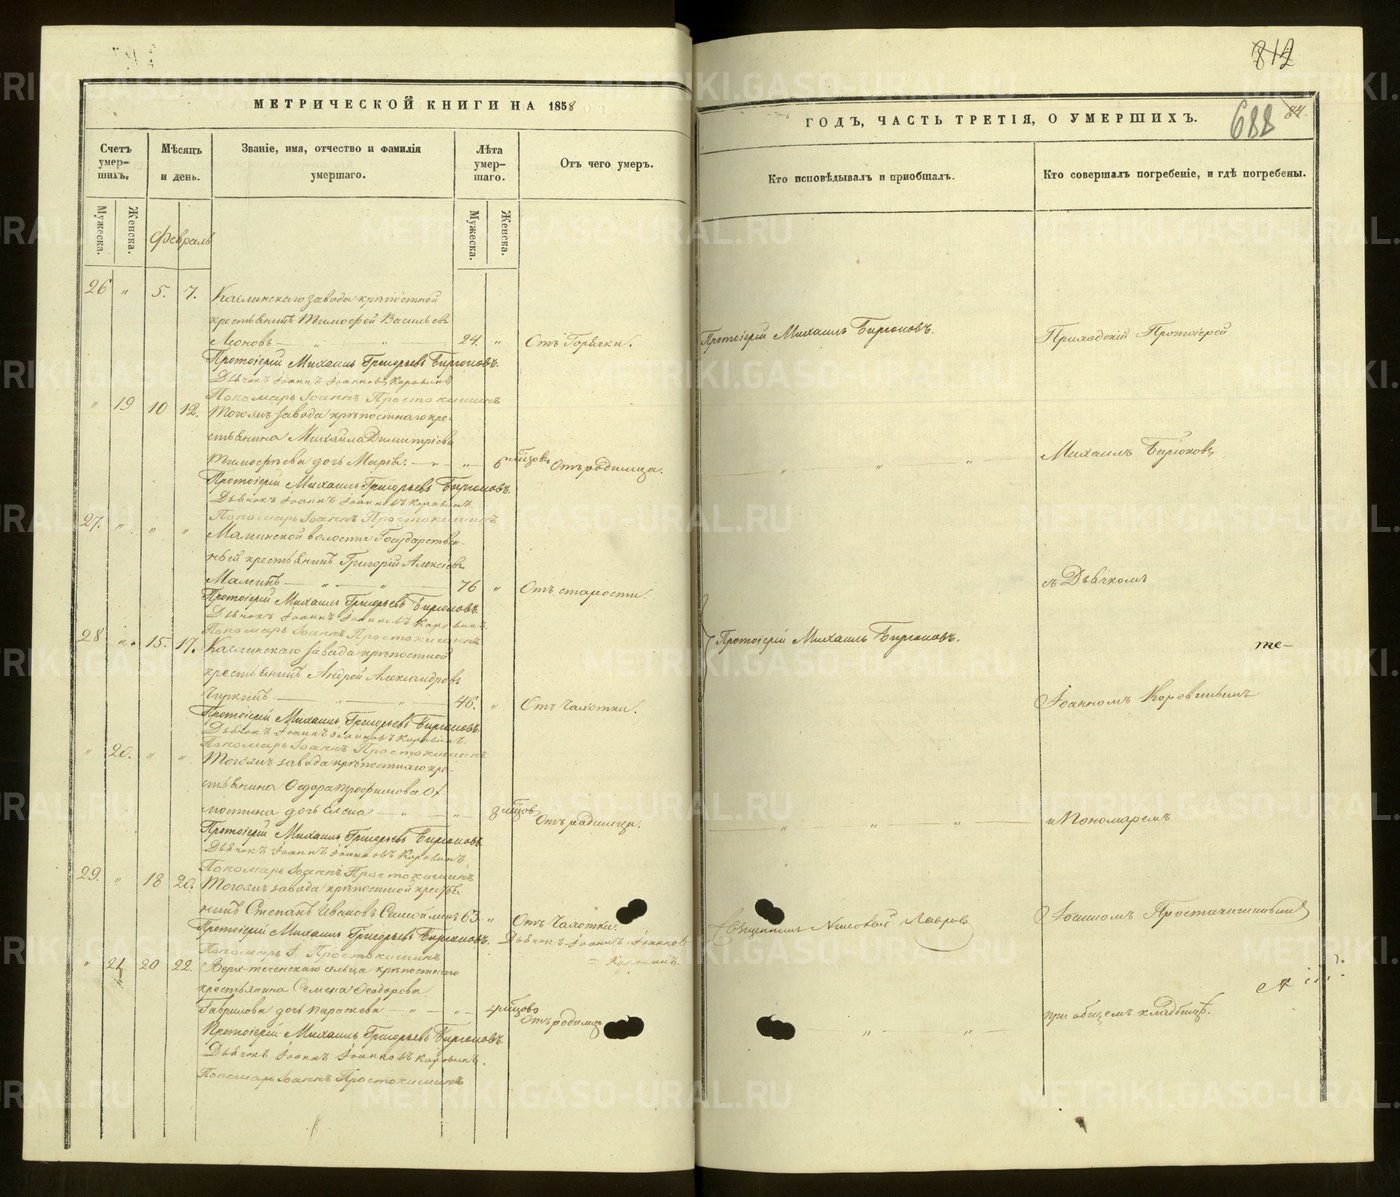 812
МЕТРИЧЕСКОЙ КНИГИ НА 1858
ГОДЪ, ЧАСТЬ ТРЕТІЯ, О УМЕРШИХЪ.
688
84.
Счетъ умер-шихъ.
Мѣсяцъ и день.
Званіе, имя, отчество и фамилія умершаго.
Лѣта умер-шаго.
Отъ чего умеръ.
Кто исповѣдывалъ и пріобщалъ.
Кто совершалъ погребеніе, и гдѣ погребены.
Мужеска.
Женска.
Февраль
Мужеска.
Женска.
26 " 5. 7. Каслинскаго завода крѣпостной
крестьянинъ Тимофей Васильевъ
Леоновъ — " " 24. " Отъ Горячки. Протоіерей Михаилъ Бирюковъ. Приходскій Протоіерей
Протоіерей Михаилъ Григорьевъ Бирюковъ.
Дьячокъ Іоаннъ Іоанновъ Коровинъ
Пономарь Іоаннъ Простокишинъ
" 19 10 12. Тогожъ завода крѣпостнаго кре-
стьянина Михаила Димитріева
Тимофѣева дочь Марія. — " — " — 6 мѣсцовъ Отъ родимца. — " " " — Михаилъ Бирюковъ,
Протоіерей Михаилъ Григорьевъ Бирюковъ.
Дьячокъ Іоаннъ Іоанновъ Коровинъ.
Пономарь Іоаннъ Простокишинъ
27. " " " Волости Государствен-
ный крестьянинъ Григорій Алексѣевъ
Маминъ — " — " — 76 " Отъ старости. съ Дьячкомъ
Протоіерей Михаилъ Григорьевъ Бирюковъ.
Дьячокъ Іоаннъ Іоанновъ Коровинъ.
Пономарь Іоаннъ Простокишинъ
28 " 15. 17. Каслинскаго завода крѣпостной Протоіерей Михаилъ Бирюковъ. те-
крестьянинъ Андрей Александровъ
— " " — 46. " Отъ Чахотки. Іоанномъ Коровинымъ
Протоіерей Михаилъ Григорьевъ Бирюковъ.
Дьячокъ Іоаннъ Іоанновъ Коровинъ.
Пономарь Іоаннъ Простокишинъ
" 20. " " Тогожъ завода крѣпостнаго кре-
стьянина Ѳедора Трофимова
дочь Елена — " — " — 8 мѣсцов Отъ родимца. — " " " — и Пономаремъ
Протоіерей Михаилъ Григорьевъ Бирюковъ.
Дьячокъ Іоаннъ Іоанновъ Коровинъ
Пономарь Іоаннъ Простокишинъ
29. " 18 20. Тогожъ завода крѣпостной крестья-
нинъ Степанъ Ивановъ 63. " Отъ Чахотки. Священникъ Николай Лавровъ Іоанномъ Простокишинымъ
Протоіерей Михаилъ Григорьевъ Бирюковъ. Дьячокъ Іоаннъ Іоанновъ
Пономарь І. Простокишинъ = Коровинъ.
" 21 20 22. Верх-теченскаго сельца крѣпостнаго
крестьянина Семена Ѳеодорова
Гаврилова дочь Параскева — " — " — 4 мѣсцовъ Отъ родимца " " при общемъ кладбищѣ.
Протоіерей Михаилъ Григорьевъ Бирюковъ.
Дьячокъ Іоаннъ Іоанновъ Коровинъ.
Пономарь Іоаннъ Простокишинъ
METRIKI.GASO-URAL.RU